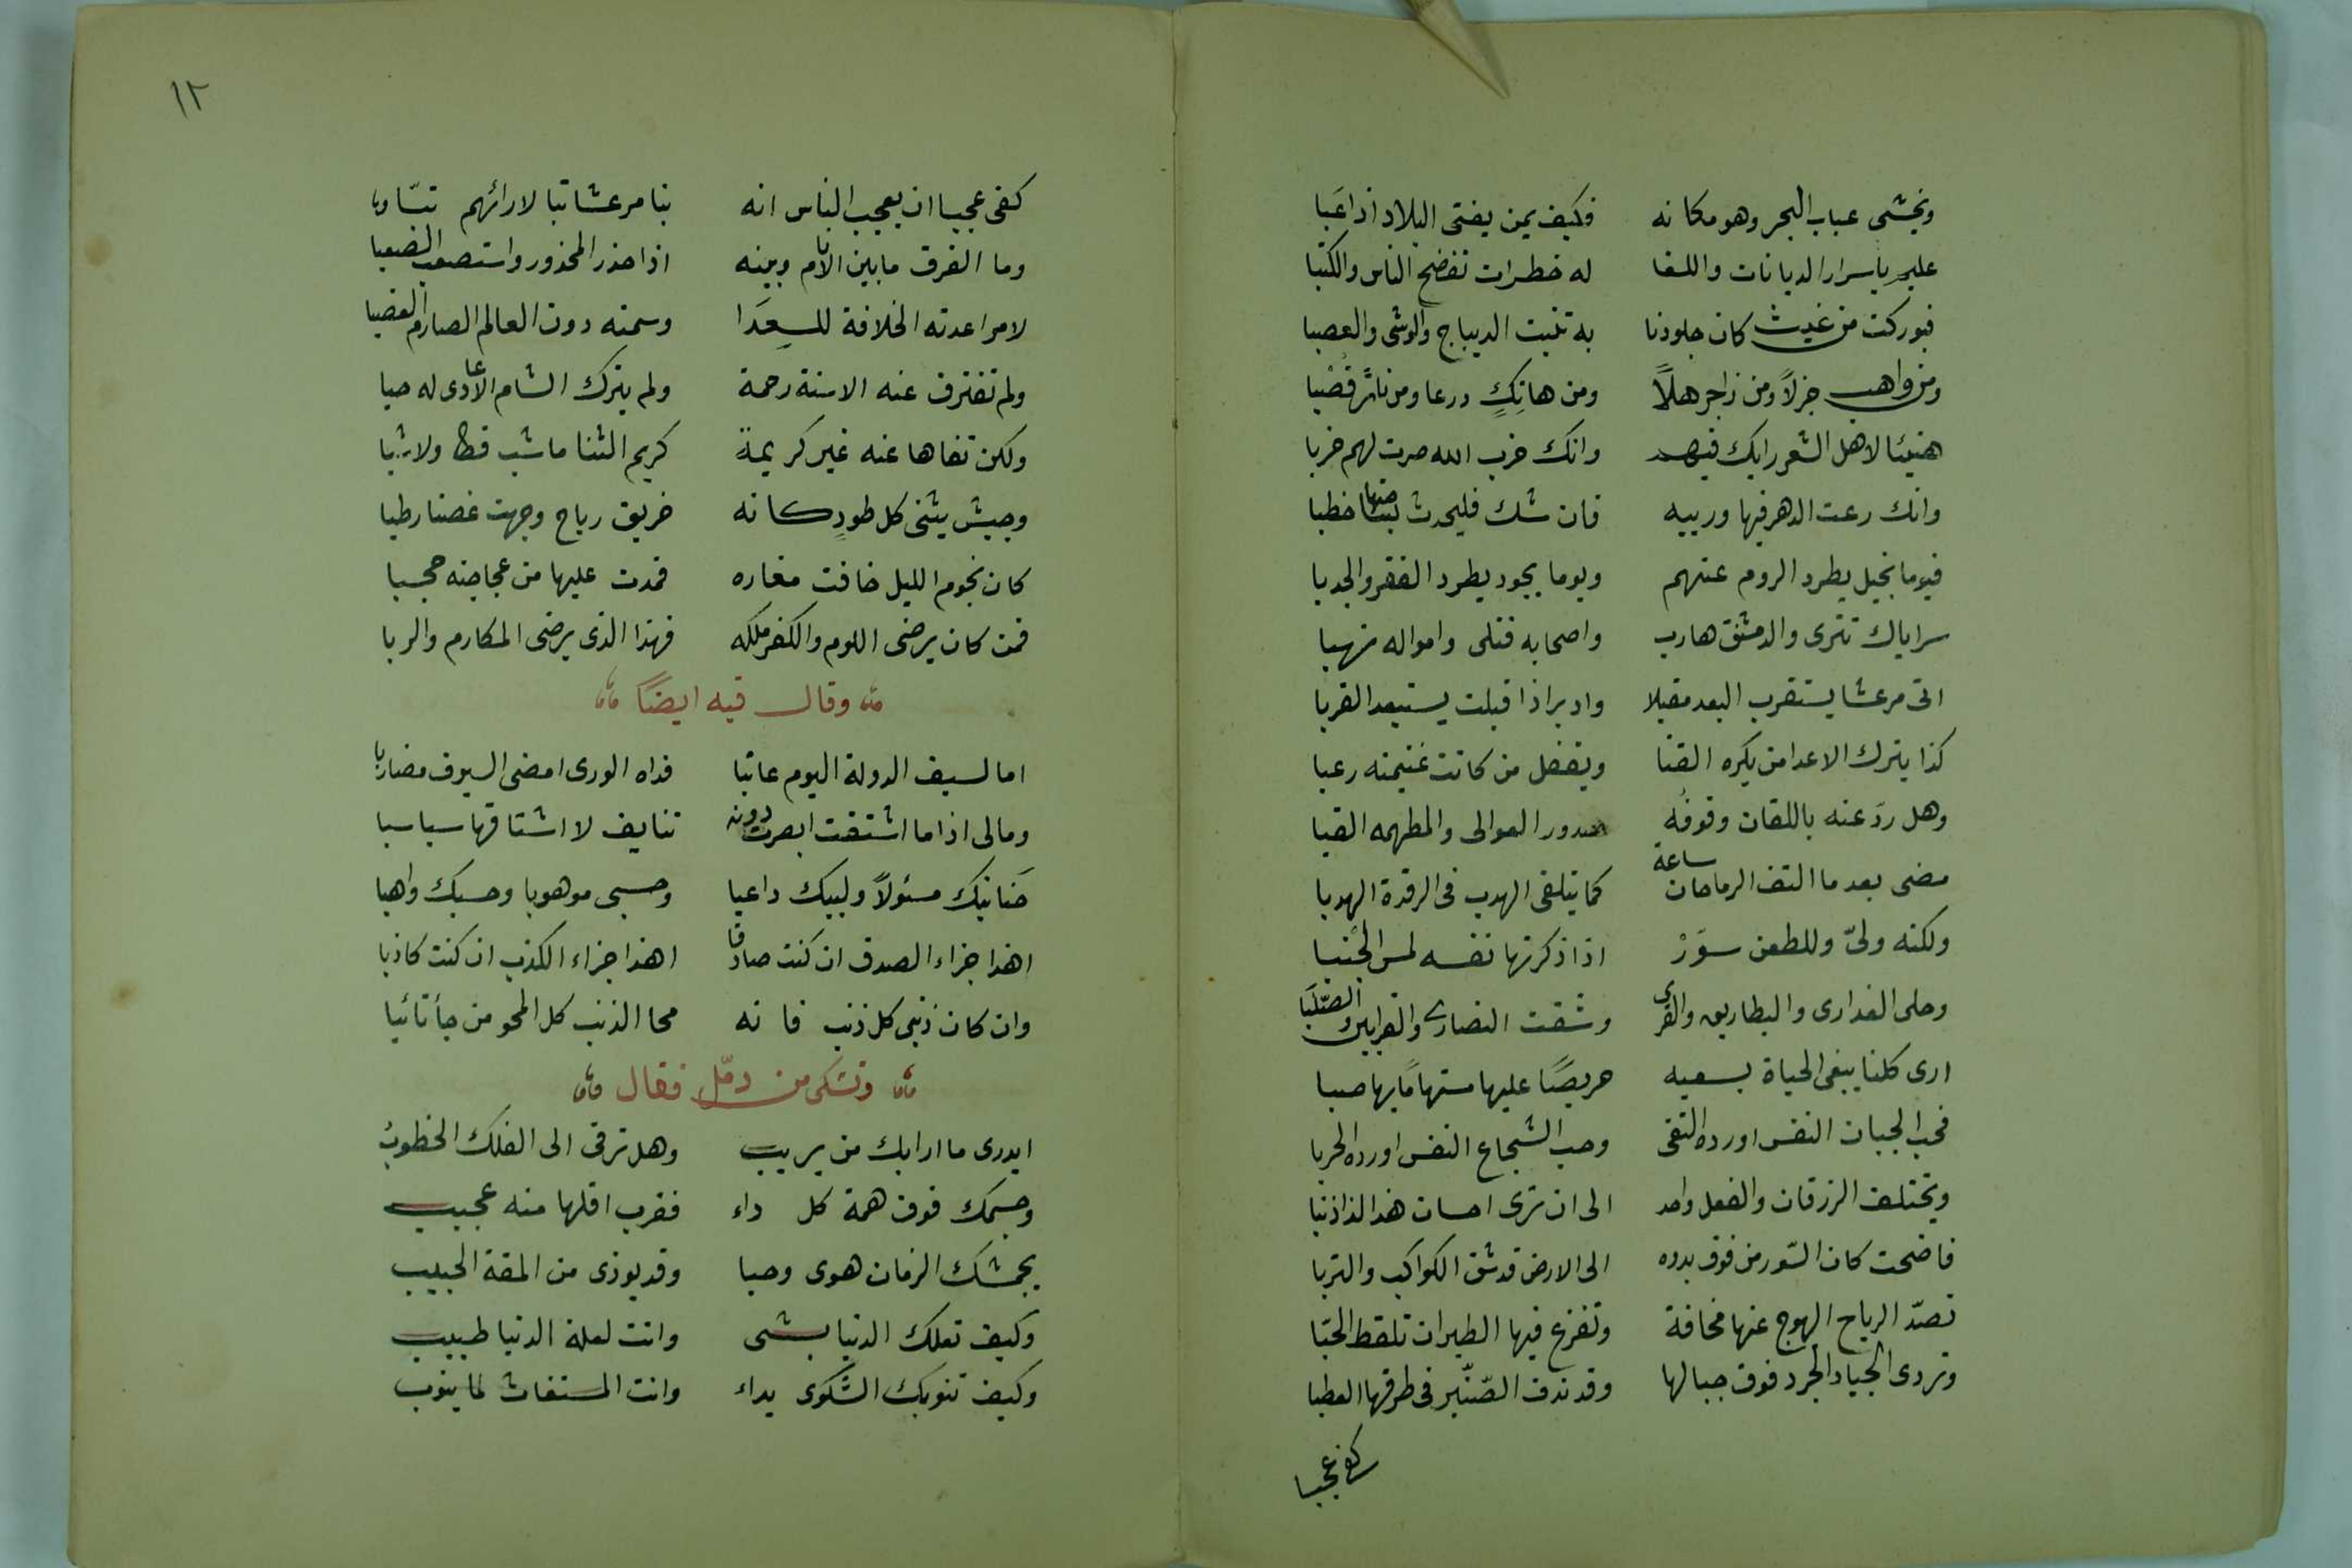 ويخشى عباب البحر وهو مكانه فكيف بمن يغشى البلاد اذا عَبا
عليم باسرار الديانات واللغا له خطرات تفضح الناس والكتبا
فبوركت من غيث كان جلودنا به تنبت الديباج والوشى والعصبا
ومن واهب جزلاً ومن زاجر هلاً ومن هاتِكٍ درعا ومن ناثر قُصْبا
هنيئا لاهل الثغر رايك فيهم وانك حزب الله صرت لهم حزبا
وانك رعت الدهر فيها وريبه فان شك فليحدث بساحتها خطبا
فيوما بخيل يطرد الروم عنهم ويوما بجود يطرد الفقر والجدبا
سراياك تترى والدمشق هارب واصحابه قتلى وامواله نهبا
اتى مرعشا يستقرب البعد مقبلا وادبر اذا قبلت يستبعد القربا
كذا يترك الاعدا من يكره القنا ويقفل من كانت غنيمته رعبا
وهل ردّ عنه باللقان وقوفُه صدور العوالى والمطهمه القبا
مضى بعد ما التف الرماحان ساعة كما يتلقى الهدب فى الرقدة الهدبا
ولكنه ولىّ وللطعن سَوَرْ اذا ذكرتها نفسه لمس الجنبا
وخلى العذارى والبطاريق والقرى وشقت النصارى والقرابين والصّلبَا
ارى كلنا يبغى الحياة بسعيه حريصًا عليها مستهامًا بها صبا
فحب الجبان النفس اورده التقى وحب الشجاع النفس اورده الحربا
ويختلف الرزقان والفعل واحد الى ان ترى احسان هذا لذا ذنبا
فاضحت كان السّور من فوق بدوه الى الارض قد شق الكواكب والتربا
تصدّ الرياح الهوج عنها مخافة وتفزع فيها الطير ان تلقط الحبّا
وتردى الجياد الجرد فوق جبالها وقد ندف الصّنّبر فى طرقها العطبا
كفى عجبا
١٢
كفى عجبا ان يعجب الناس انه بنا مرعشا تبا لارائهم تبّا
وما الفرق ما بين الانام وبينه اذا حذر المحذور واستصعب الصعبا
لامر اعدته الخلافة للعدَا وسمته دون العالم الصارم العضبا
ولم تفترق عنه الاسنة رحمة ولم يترك الشام الاعادى له حبا
ولكن نفاها عنه غير كريمة كريم الثنا ما سُب قط ولا سُبا
وجيش يثنى كل طودٍ كانه خريق رياح وجهت غصنا رطبا
كان نجوم الليل خافت مغاره فمدت عليها من عجاجته حجبا
فمن كان يرضى اللوم والكفر ملكه فهذا الذى يرضى المكارم والربا
وقال فيه ايضًا
اما لسيف الدولة اليوم عاتبا فداه الورى امضى السيوف مضاربا
ومالى اذا ما اشتقت ابصرت دونه تنايف لا اشتاقها سباسبا
حَنانيك مسئولاً ولبيك داعيا وحسبى موهوبا وحسبك واهبا
اهذا جزاء الصدق ان كنت صادقا اهذا جزاء الكذب ان كنت كاذبا
وان كان ذنبى كل ذنب فانه محا الذنب كل المحو من جأ تائبا
وتشكى من دمّل فقال
ايدرى ما ارابك من يريب وهل ترقى الى الفلك الخطوبُ
وجسمك فوق همة كل داء فقرب اقلها منه عجيب
يجمشك الزمان هوى وحبا وقد يوذى من المقة الحبيب
وكيف تعلك الدنيا بشى وانت لعلة الدنيا طبيب
وكيف تنوبك الشكوى بداء وانت المستغاث لما ينوب